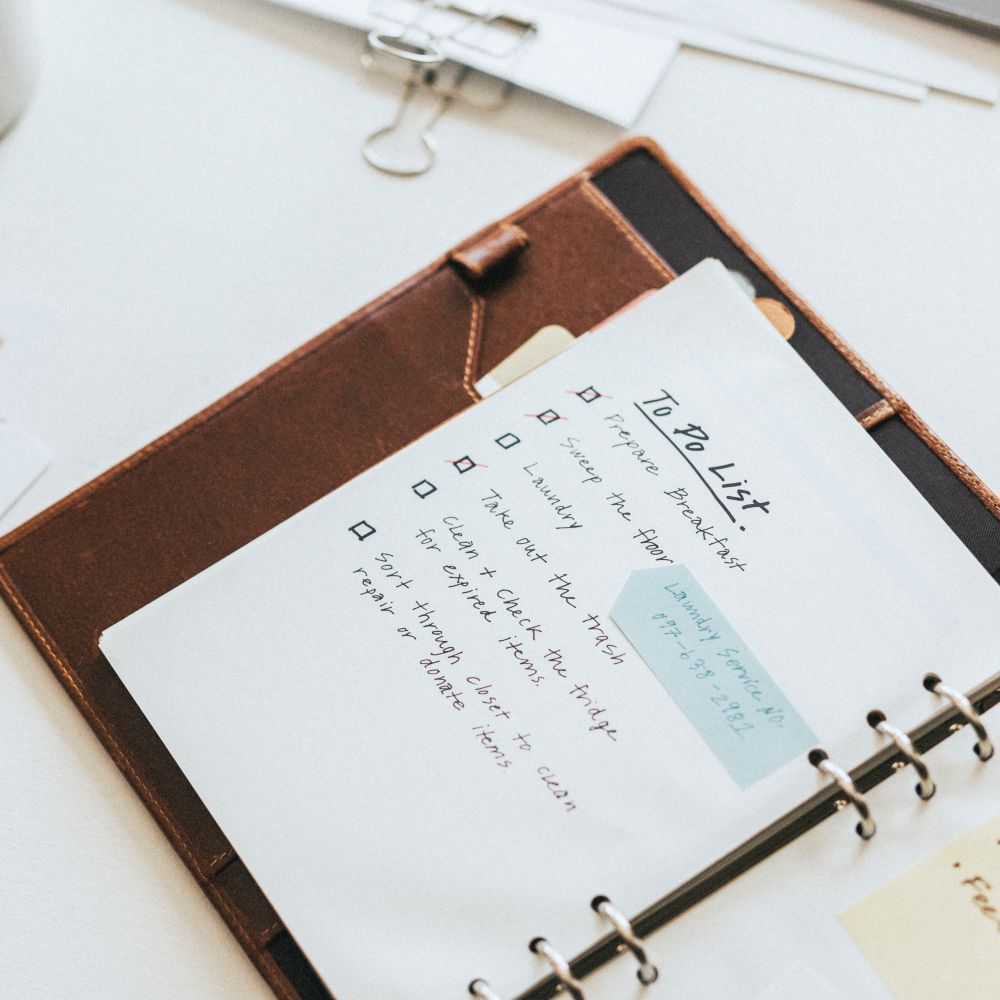 To Do List.
Prepare Breakfast
Sweep the floor
Laundry
Take out the trash
Clean + check the fridge
for expired items.
Sort through closet to clean
repair or donate items
Laundry Service No.
097-638-2981